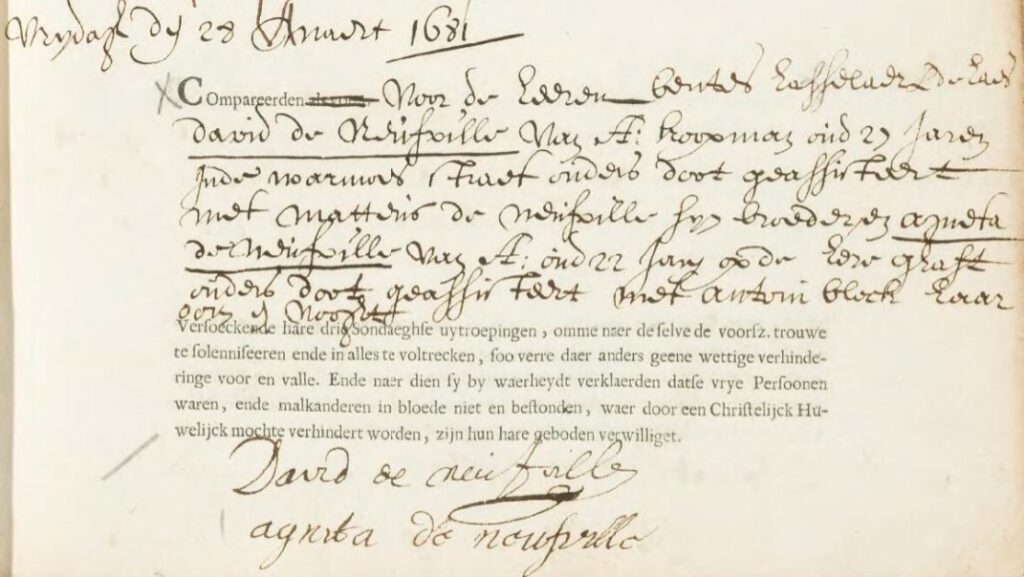 Vrydagh dy 28 Maert 1681
Compareerden als vooren Voor de Heeren bentes Hasselaer & de Haes
david de Neufville Van A: koopman oud 27 Jaren
Inde warmoes straet ouders doot geassisteert
met Matteus de neufville syn broeder en agneta
de Neufville Van A: oud 22 Jaren op de Here graft
ouders doot geassisteert met antoni block haar
oom &
Versoeckende hare drie Sondaeghse uytroepingen, omme naer de selve de voorsz. trouwe
te solenniseeren ende in alles te voltrecken, soo verre daer anders geene wettige verhinde-
ringe voor en valle. Ende naer dien sy by waerheydt verklaerden datse vrye Persoonen
waren, ende malkanderen in bloede niet en bestonden, waer door een Christelijck Hu-
welijck mochte verhindert worden, zijn hun hare geboden verwilliget.
David de neufville
agnita de neufville